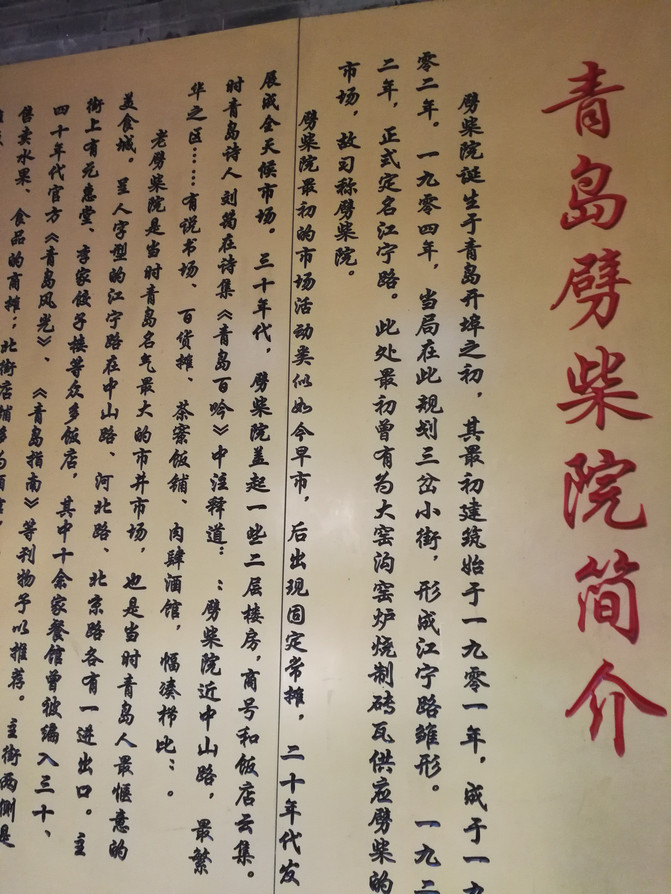 青岛劈柴院简介
劈柴院诞生于青岛开埠之初，其最初建筑始于一九零一年，成于一九
零二年。一九零四年，当局在此规划三岔小街，形成江宁路雏形。一九二
二年，正式定名江宁路。此处最初曾有为大窑沟窑炉烧制砖瓦供应劈柴的
市场，故习称劈柴院。
劈柴院最初的市场活动类似如今早市，后出现固定常摊，二十年代发
展成全天候市场。三十年代，劈柴院盖起一些二层楼房，商号和饭店云集。
时青岛诗人刘筠在诗集《青岛百吟》中注释道：：劈柴院近中山路，最繁
华之区……有说书场、百货摊、茶寮饭铺、肉肆酒馆，幅凑栉比：。
老劈柴院是当时青岛名气最大的市井市场，也是当时青岛人最惬意的
美食城。呈人字型的江宁路在中山路、河北路、北京路各有一进出口。主
街上有元惠堂、李家饺子楼等众多饭店，其中十余家餐馆曾被编入三十、
四十年代官方《青岛风光》、《青岛指南》等刊物予以推荐。主街两侧是
售卖水果、食品的商摊；北街店铺多为